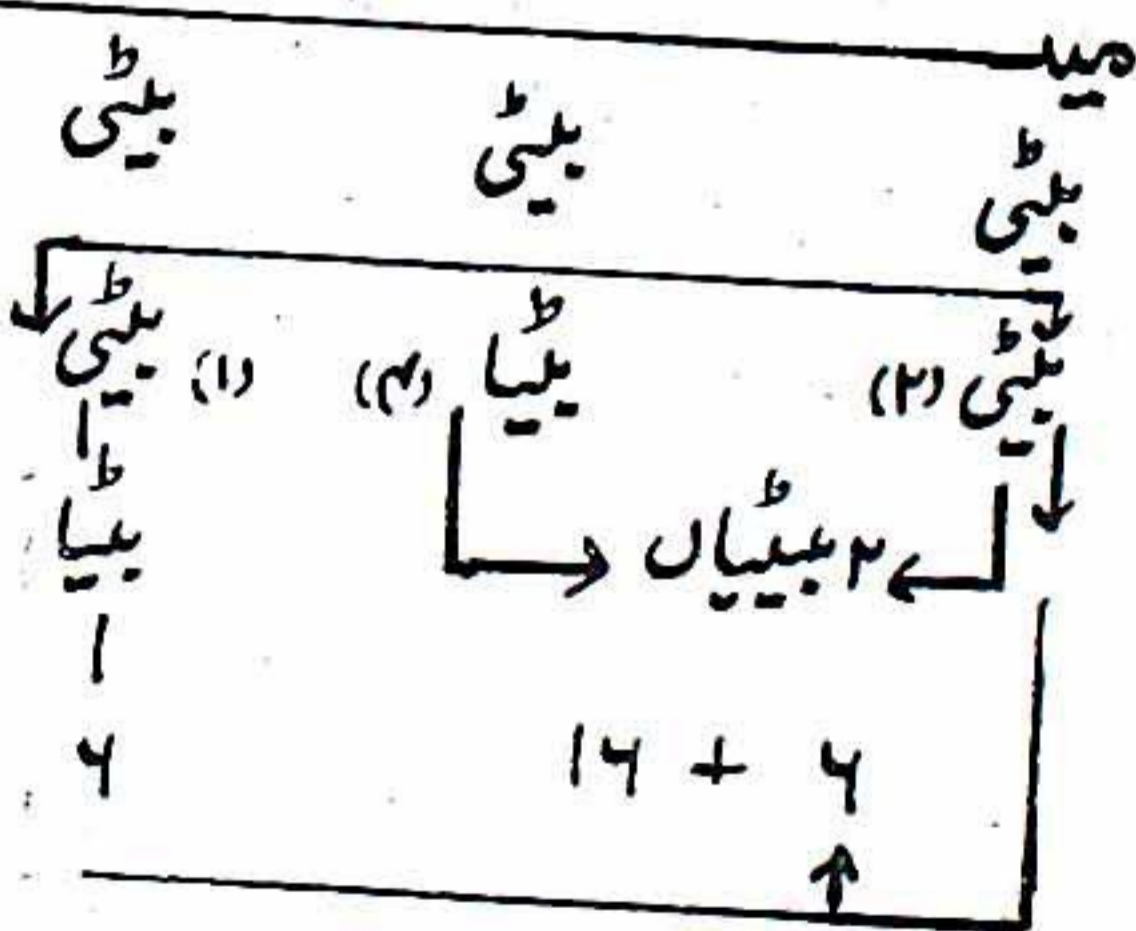 میت
بیٹی بیٹی بیٹی
بیٹی (۲) بیٹا (۴) بیٹی (۱)
۲ بیٹیاں بیٹا
۶ + ۱۶ ۶